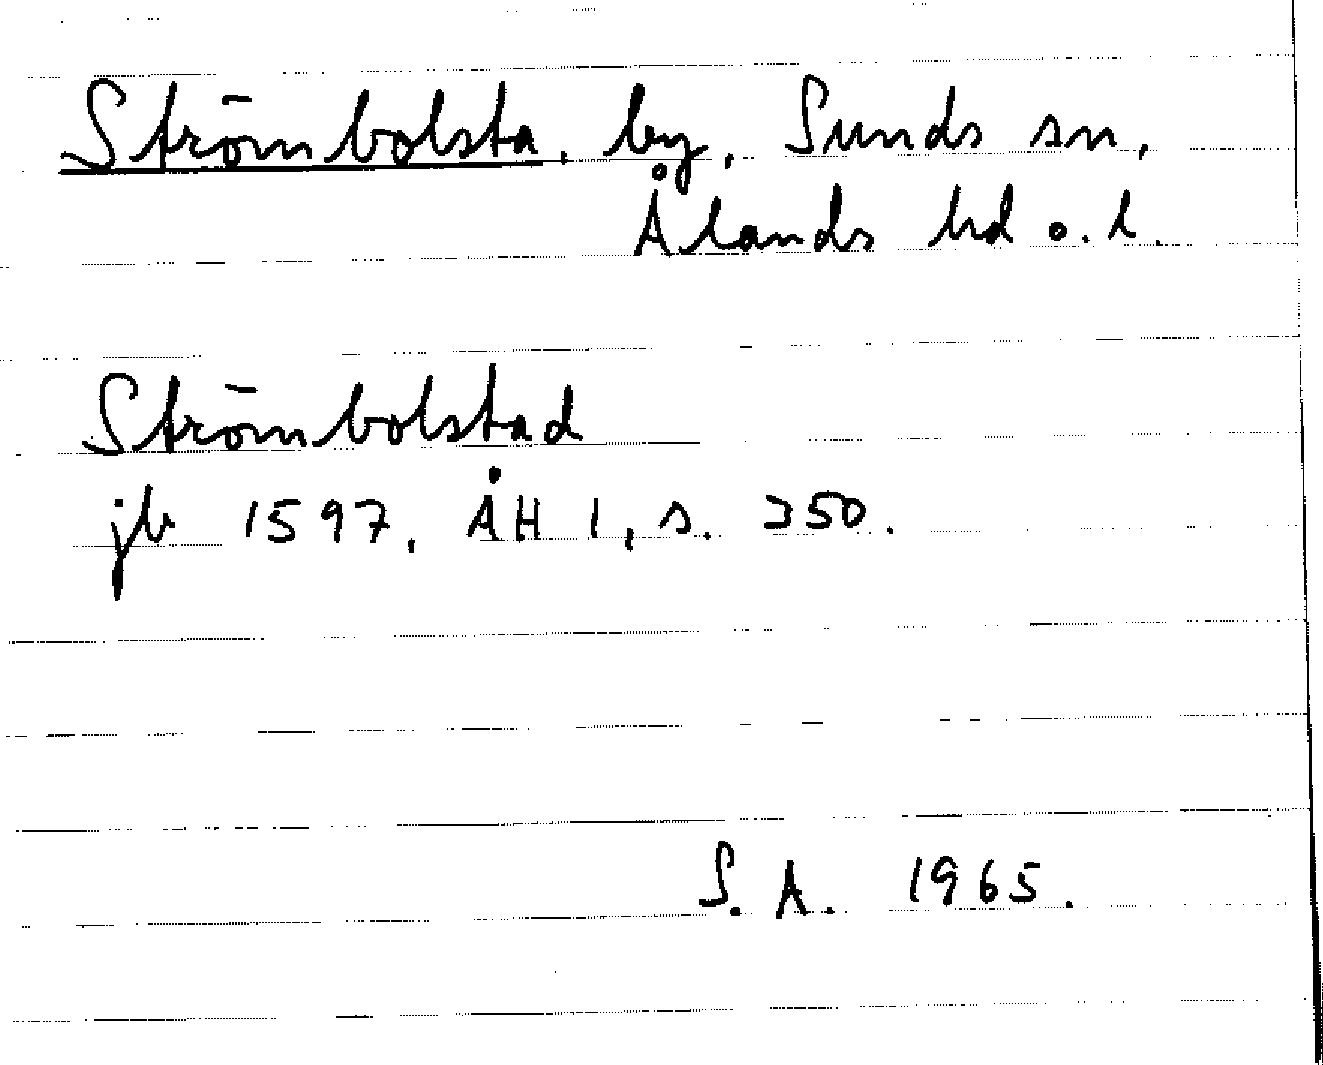 Strömbolsta, by, Sunds sn,
Ålands hd o. l.
Strömbolstad
jb 1597, ÅH 1, s. 250.
S. A. 1965.